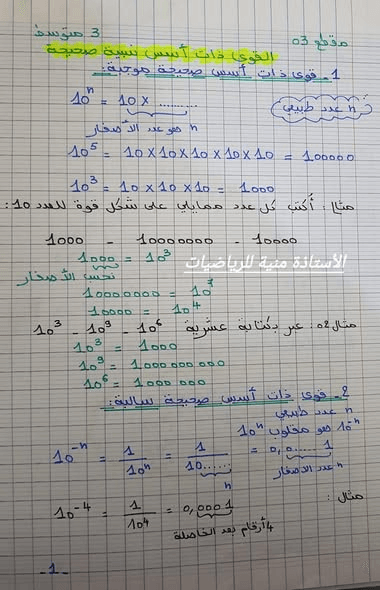 مقطع 03
3 متوسط
القوى ذات أسس نسبية صحيحة
1- قوى ذات أسس صحيحة موجبة:
n عدد طبيعي
10ⁿ = 10 × ..........
n هو عدد الأصفار
10⁵ = 10 × 10 × 10 × 10 × 10 = 100000
10³ = 10 × 10 × 10 = 1000
مثال: أكتب كل عدد ممايلي على شكل قوة للعدد 10:
1000 - 10000000 - 10000
1000 = 10³
نحسب الأصفار
الأستاذة منية للرياضيات
10000000 = 10⁷
10000 = 10⁴
مثال 02: عبر بكتابة عشرية 10⁶ - 10⁹ - 10³
10³ = 1000
10⁹ = 1000 000 000
10⁶ = 1000 000
2- قوى ذات أسس صحيحة سالبة:
n عدد طبيعي
10⁻ⁿ هو مقلوب 10ⁿ
10⁻ⁿ = 1/10ⁿ = 1/10..... = 0,0.....1
n
n عدد الأصفار
مثال:
10⁻⁴ = 1/10⁴ = 0,0001
4 أرقام بعد الفاصلة
-1-